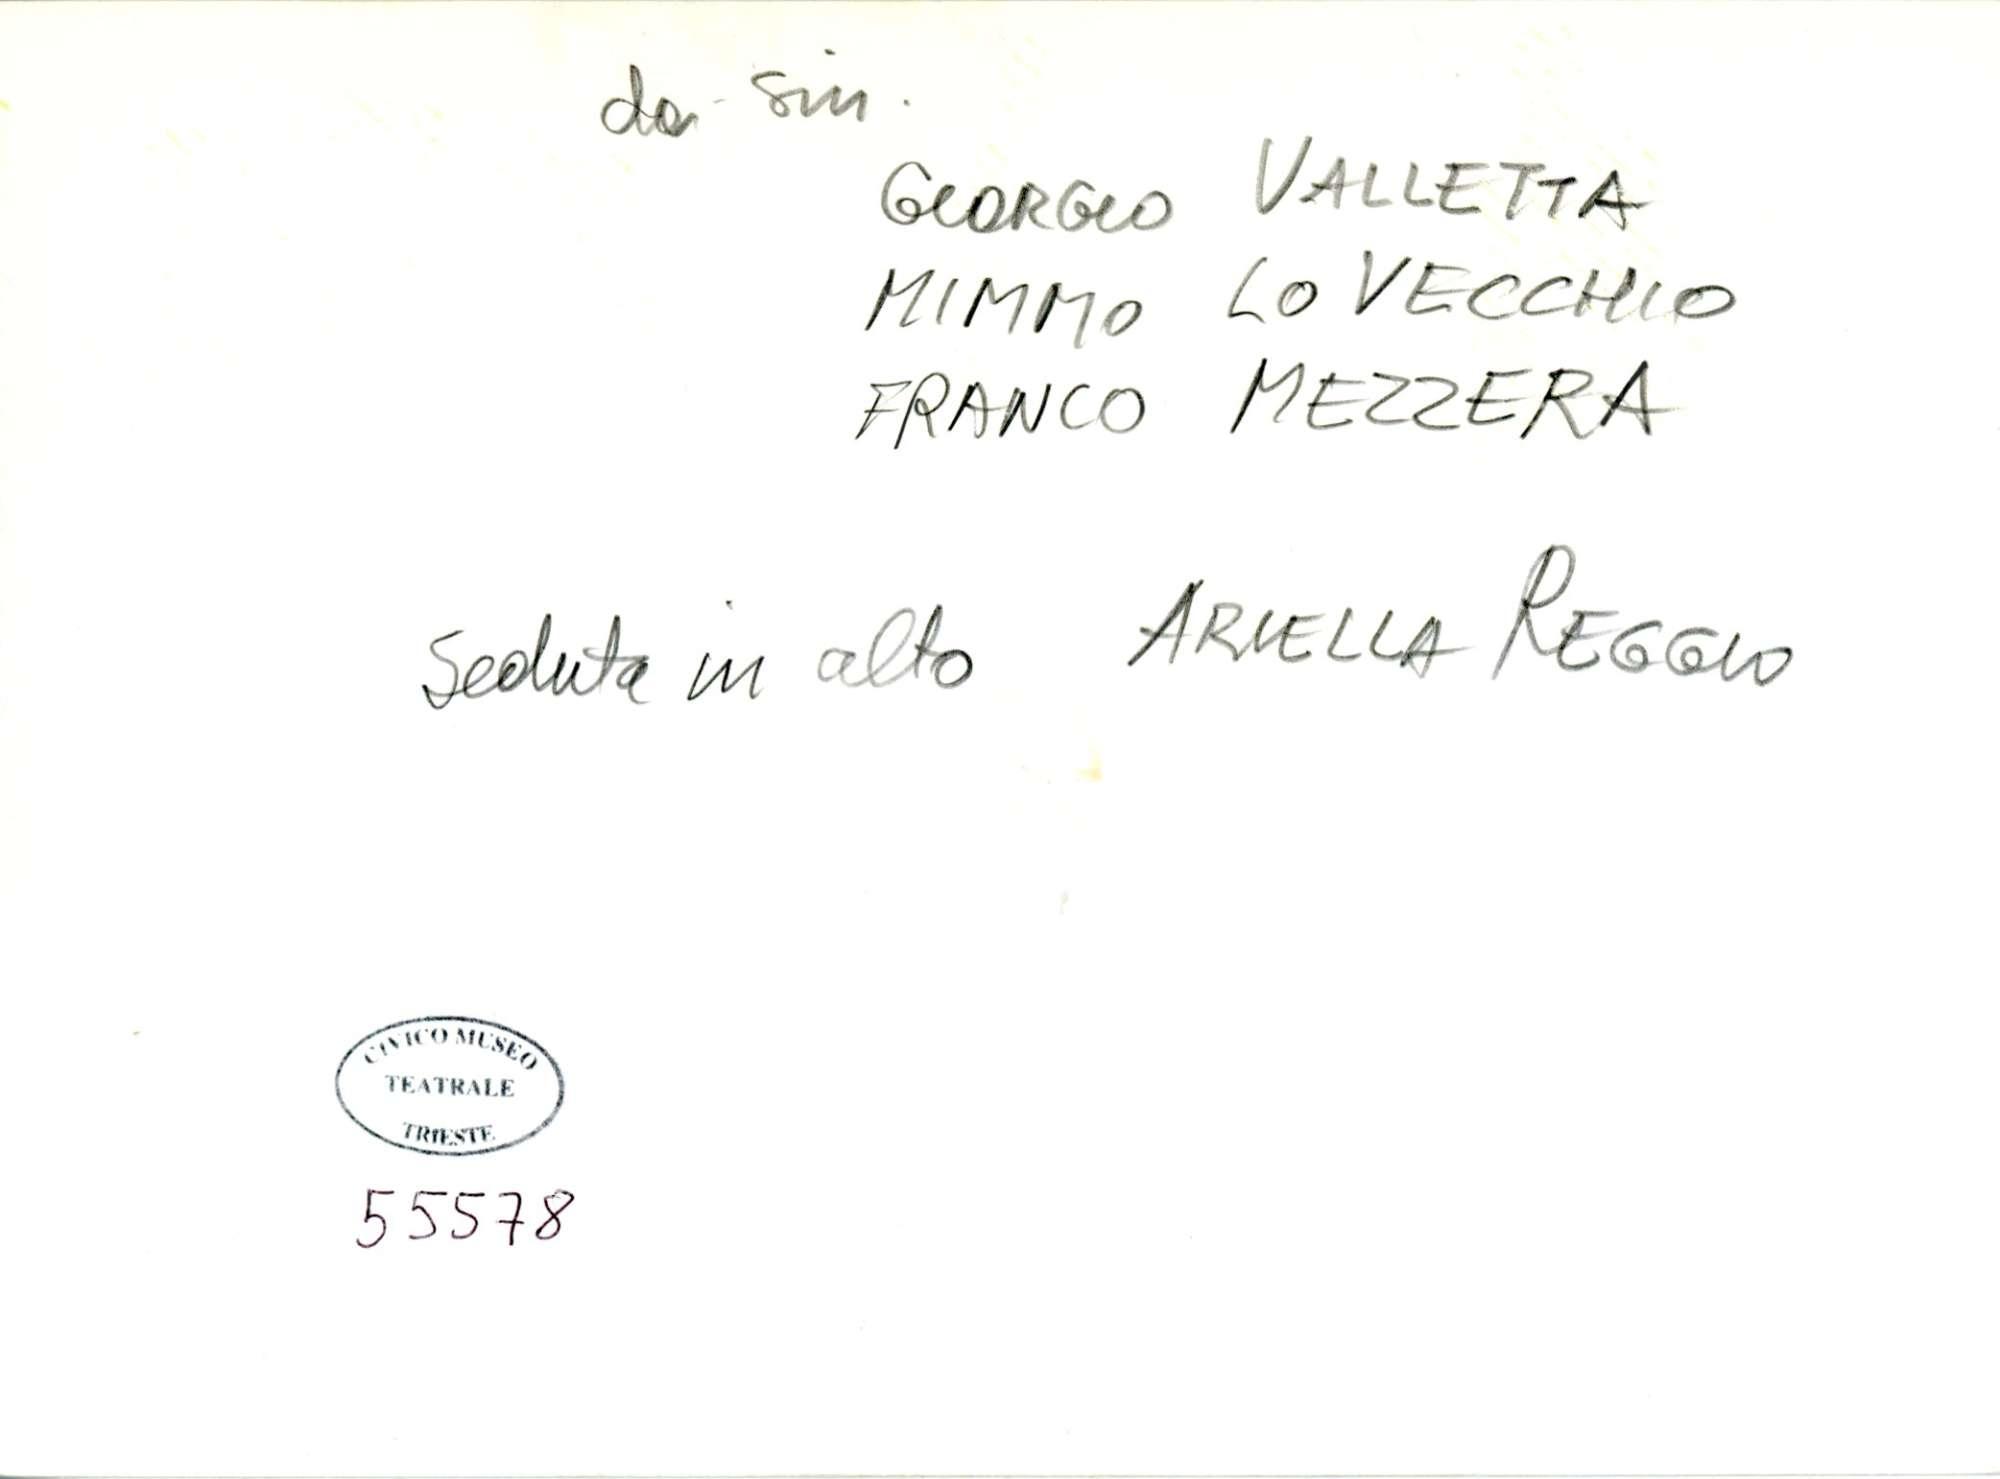 da sin.
GIORGIO VALLETTA
MIMMO LO VECCHIO
FRANCO MEZZERA
Seduta in alto ARIELLA REGGIO
CIVICO MUSEO
TEATRALE
TRIESTE
55578